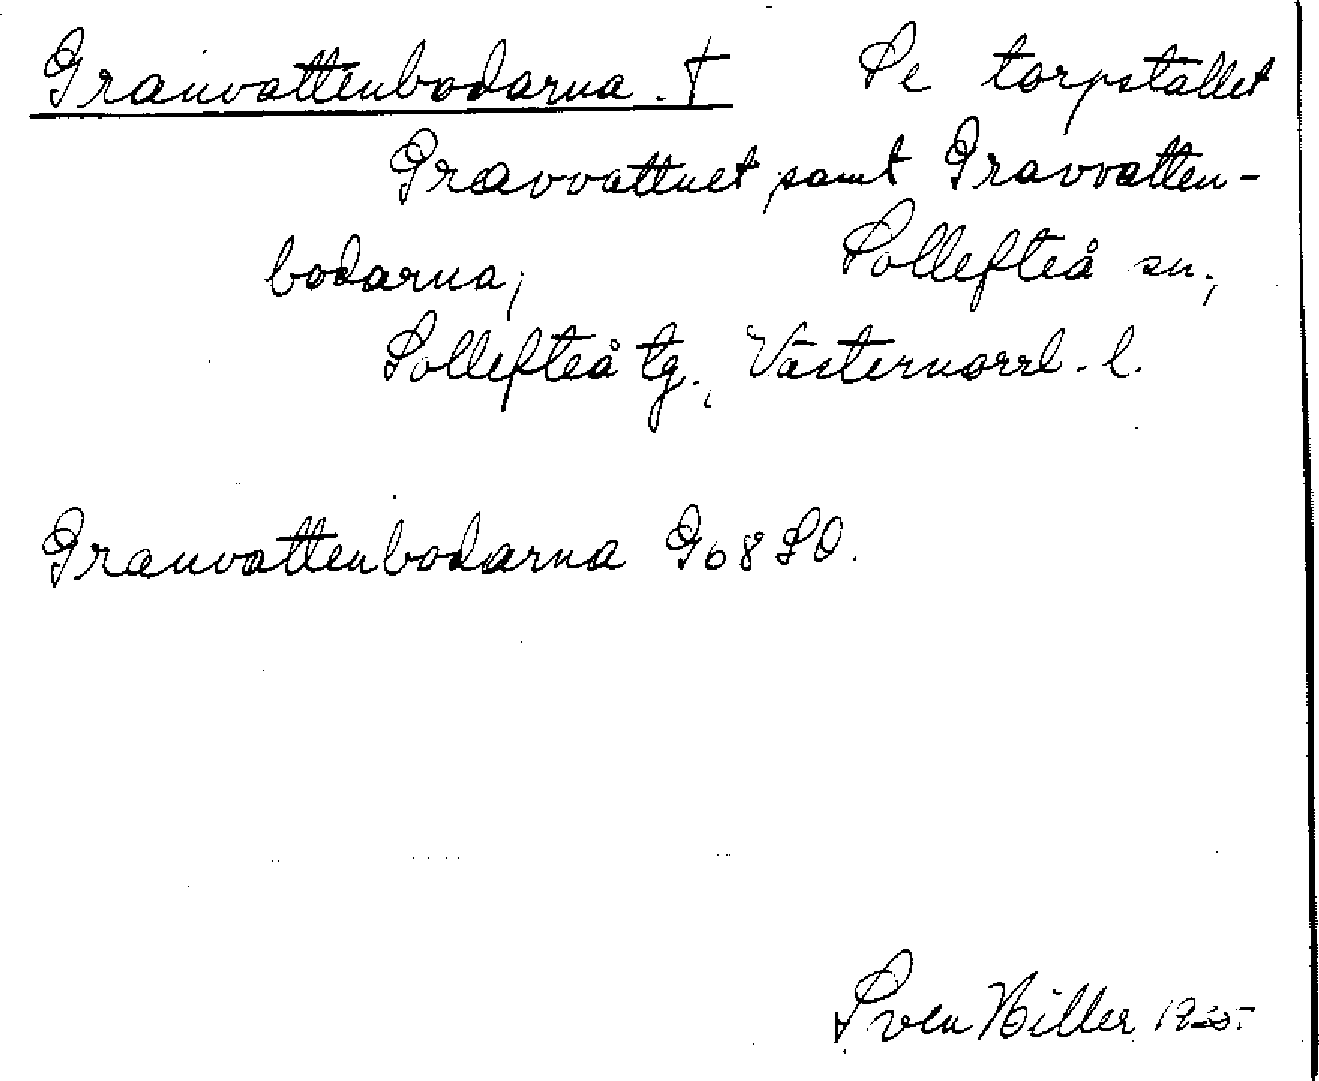 Granvattenbodarna. † Se torpstället
Gravvattnet samt Gravvatten-
bodarna, Sollefteå sn;
Sollefteå tg., Västernorrl. l.
Granvattenbodarna G68SO.
Sven Hiller